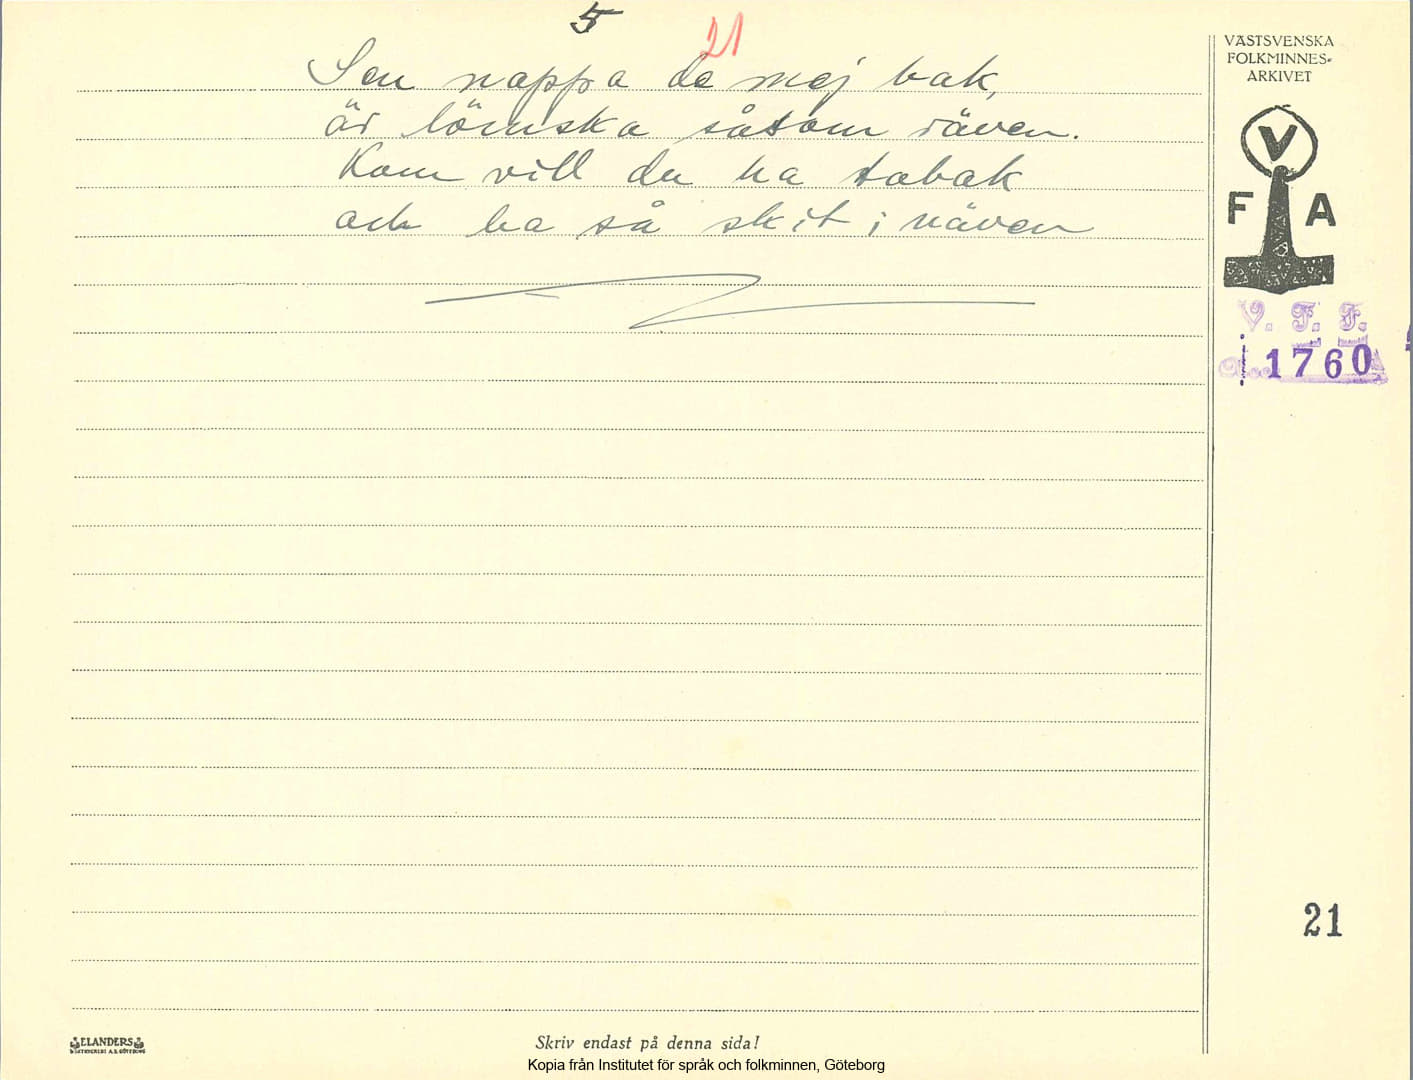 5
21
Sen nappa de mej bak,
är lömska såsom räven.
Kom vill du ha tabak
och ha så skit i näven
VÄSTSVENSKA
FOLKMINNES-
ARKIVET
V
F A
V. F. F.
1760
21
ELANDERS
Skriv endast på denna sida!
Kopia från Institutet för språk och folkminnen, Göteborg